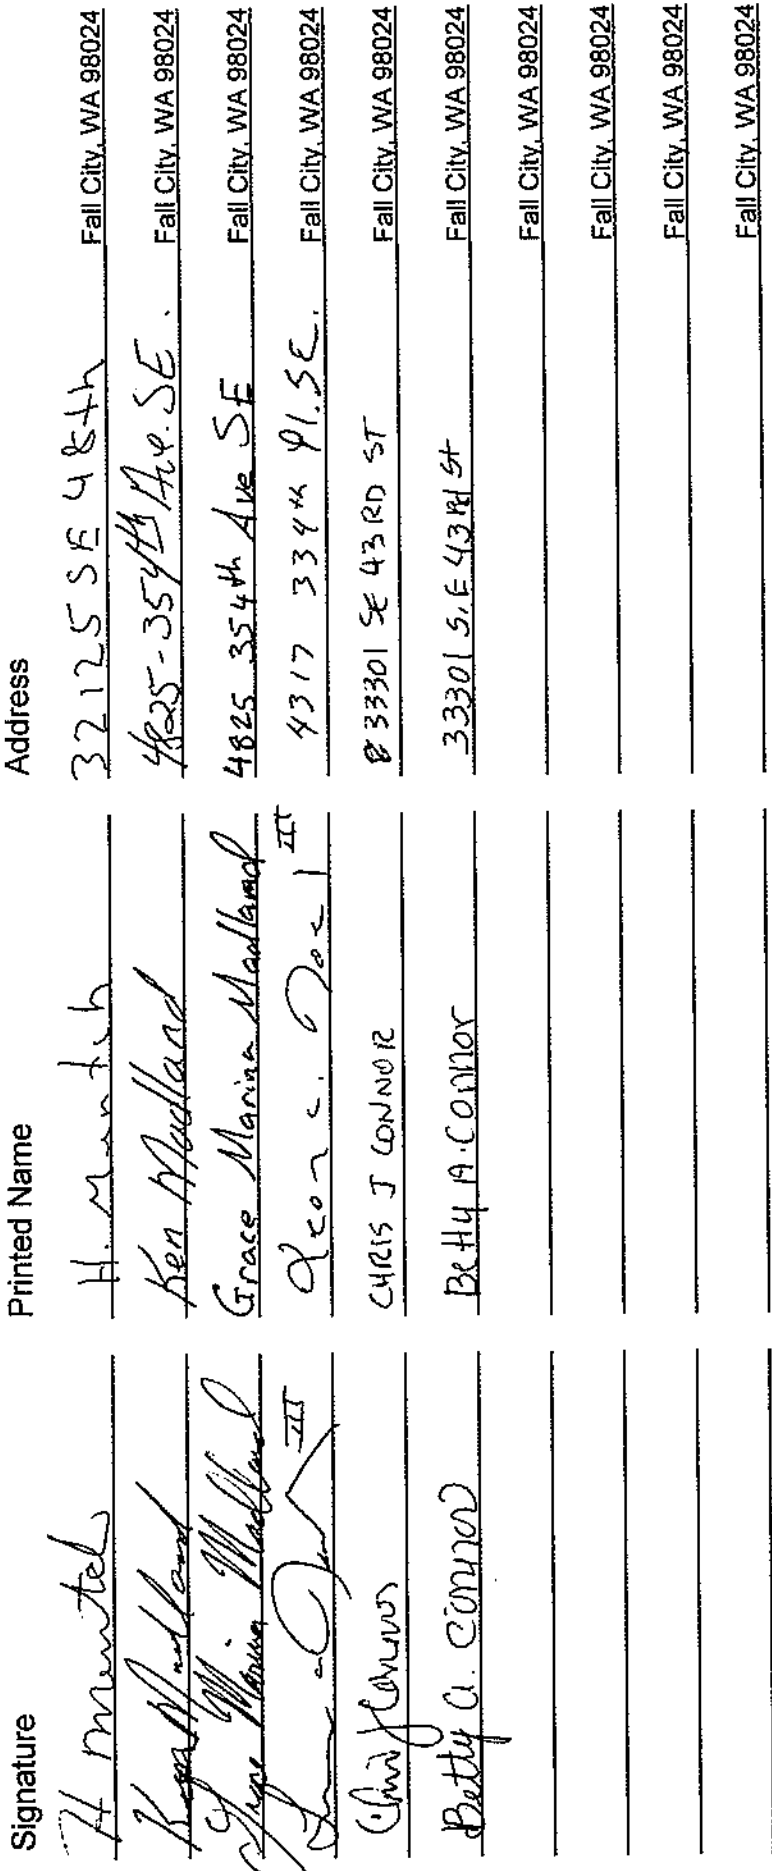 Signature Printed Name Address
H H. 32125 SE 48th Fall City, WA 98024
Ken Madland Ken Madland 4825-354th Ave. SE. Fall City, WA 98024
Marina Madland Grace Marina Madland 4825 354th Ave SE Fall City, WA 98024
III Leon C. III 4317 334th Pl. SE. Fall City, WA 98024
Chris J Connor CHRIS J CONNOR 33301 SE 43RD ST Fall City, WA 98024
Betty A. Connor Betty A. Connor 33301 S.E 43rd St Fall City, WA 98024
Fall City, WA 98024
Fall City, WA 98024
Fall City, WA 98024
Fall City, WA 98024